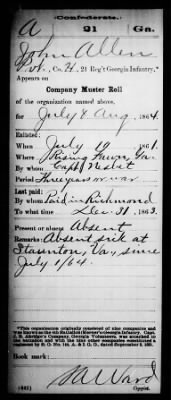 Confederate.
A 21 Ga.
John Allen
Pvt., Co. H, 21 Reg't Georgia Infantry.*
Appears on
Company Muster Roll
of the organization named above,
for July & Aug, 1864.
Enlisted:
When July 19, 1861.
Where Rising Fawn, Ga.
By whom Capt Nesbit
Period Three years or war
Last paid:
By whom Paid in Richmond
To what time Dec. 31, 1863.
Present or absent Absent
Remarks: Absent sick at
Staunton, Va, since
July 1/64.
*This organization originally consisted of nine companies and
was known as the
Book mark:
S A Ward
(642) Copyist.